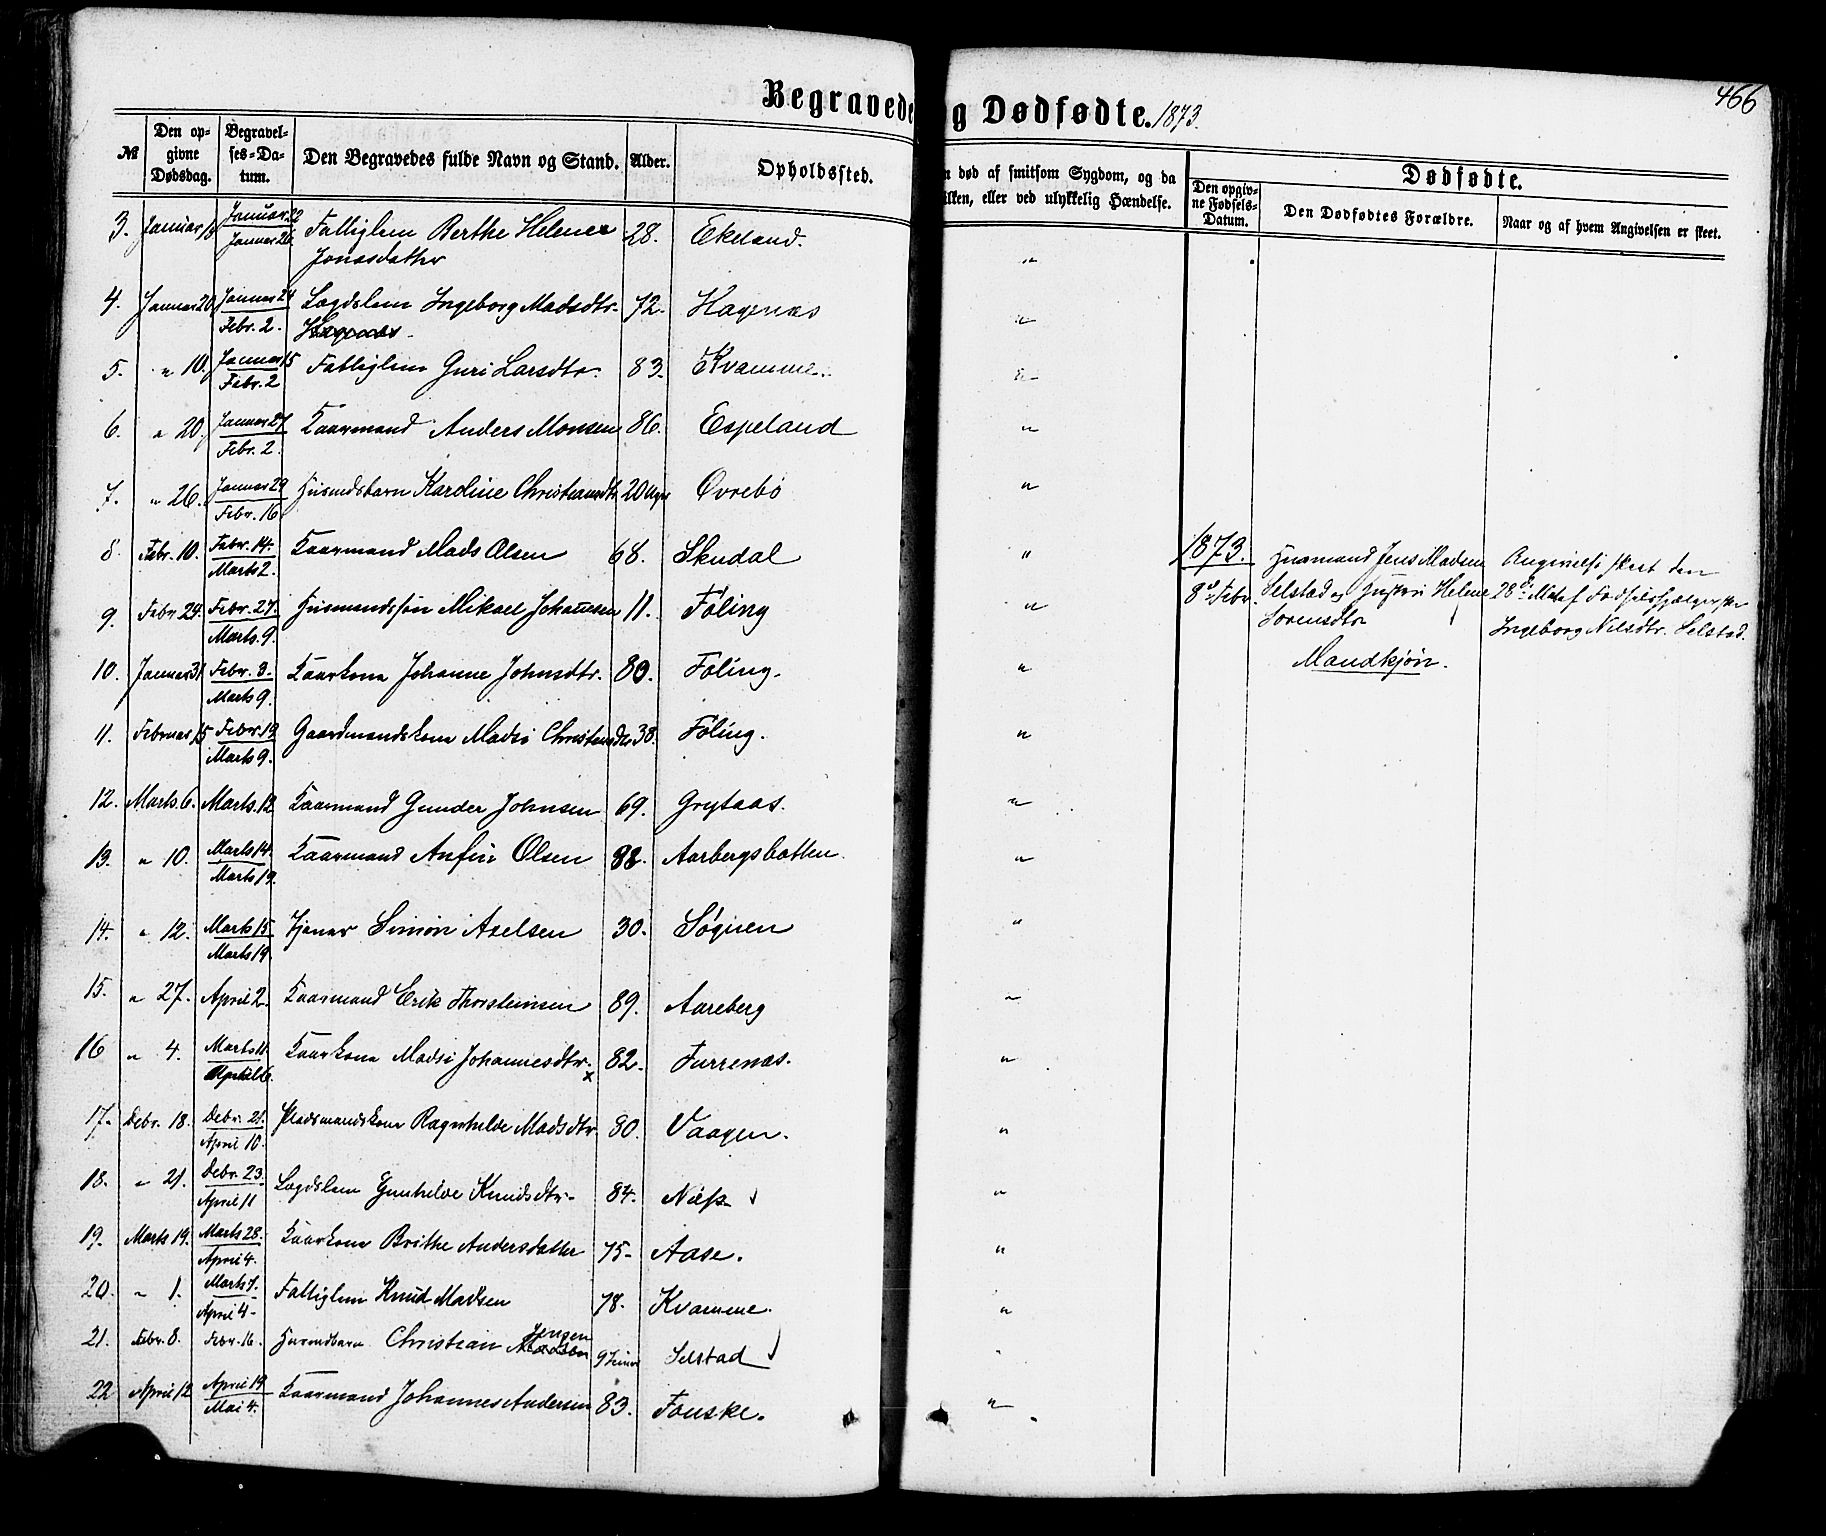 466
Begravede og Dødfødte. 1873.
№ Den opgivne Dødsdag. Begravelses-Datum. Den Begravedes fulde Navn og Stand. Alder. Opholdssted.
død af smitsom Sygdom, og da
ilken, eller ved ulykkelig Hændelse.
Dødfødte.
Den opgivne Fødsels-Datum. Den Dødfødtes Forældre. Naar og af hvem Angivelsen er skeet.
3. Januar 18 Januar 22 Januar 26 Fattiglem Berthe Helene 28. Ekeland. "
Jonasdatter
4. Januar 20 Januar 24 Febr. 2. Lægdslem Ingeborg Madsdtr. 72. Hagenæs "
Hagenæs.
5. " 10. Januar 15 Febr. 2 Fattiglem Guri Larsdtr. 83. Kvamme. "
6. " 20. Januar 27 Febr. 2. Kaarmand Anders Monsen 86. Espeland "
7. " 26. Januar 29 Febr. 16. Karoline Christiansdtr 20 Uger Ovrebö "
8. Febr. 10. Febr. 14. Marts 2. Kaarmand Mads Olsen 68. Skudal "
9. Febr 24. Febr. 27. Marts 9. Husmandssön Mikael Johannesen 11. Föling "
10. Januar 31 Febr. 3. Marts 9. Kaarkona Johanne Johnsdtr. 80. Föling. "
11. Februar 15 Febr. 19 Marts 9. Gaardmandskona Madsi Christensdtr 38. Föling. "
12. Marts 6. Marts. 12. Kaarmand Gunder Johnsen 69. Grytaas. "
13. " 10. Marts 14. Marts 19. Kaarmand Anfin Olsen 88. Aarbergsbotten. "
14. " 12. Marts 15 Marts 19. Tjener Simon Axelsen 30. Søgnen "
15. " 27. April 2. Kaarmand Erik Thorsteinsen 89. Aareberg "
16 " 4. Marts 11. April 6. Kaarkona Madsi Johannesdtr. x 82. Furrenæs. "
17. Febr. 18. Febr. 21. April 10. Pladsmandskona Ragnhilde Madsdtr. 80. Vaagen. "
18. " 21. Febr. 23. April 11 Lægdslem Gunhilde Knudsdtr. 84. "
19. Marts 19. Marts 28. April 4. Kaarkona Brithe Andersdatter 75. Aase. "
20. " 1. Marts 7. April 4. Fattiglem Knud Madsen 78. Kvamme. "
21. Febr. 8. Febr. 16. Christian Jensen Madsen 9 Timer Selstad
22 April 12 April 19 Mai 4. Kaarmand Johannes Andersen 83. Fonske. "
1873.
8de Febr.
Husmand Jens Madsen
Selstad og Hustru Helene
Sorensdtr
Mandkjön.
Angivelse skeet den
28de af Fødselshjælgerske
Ingeborg Nilsdtr. Selstad.